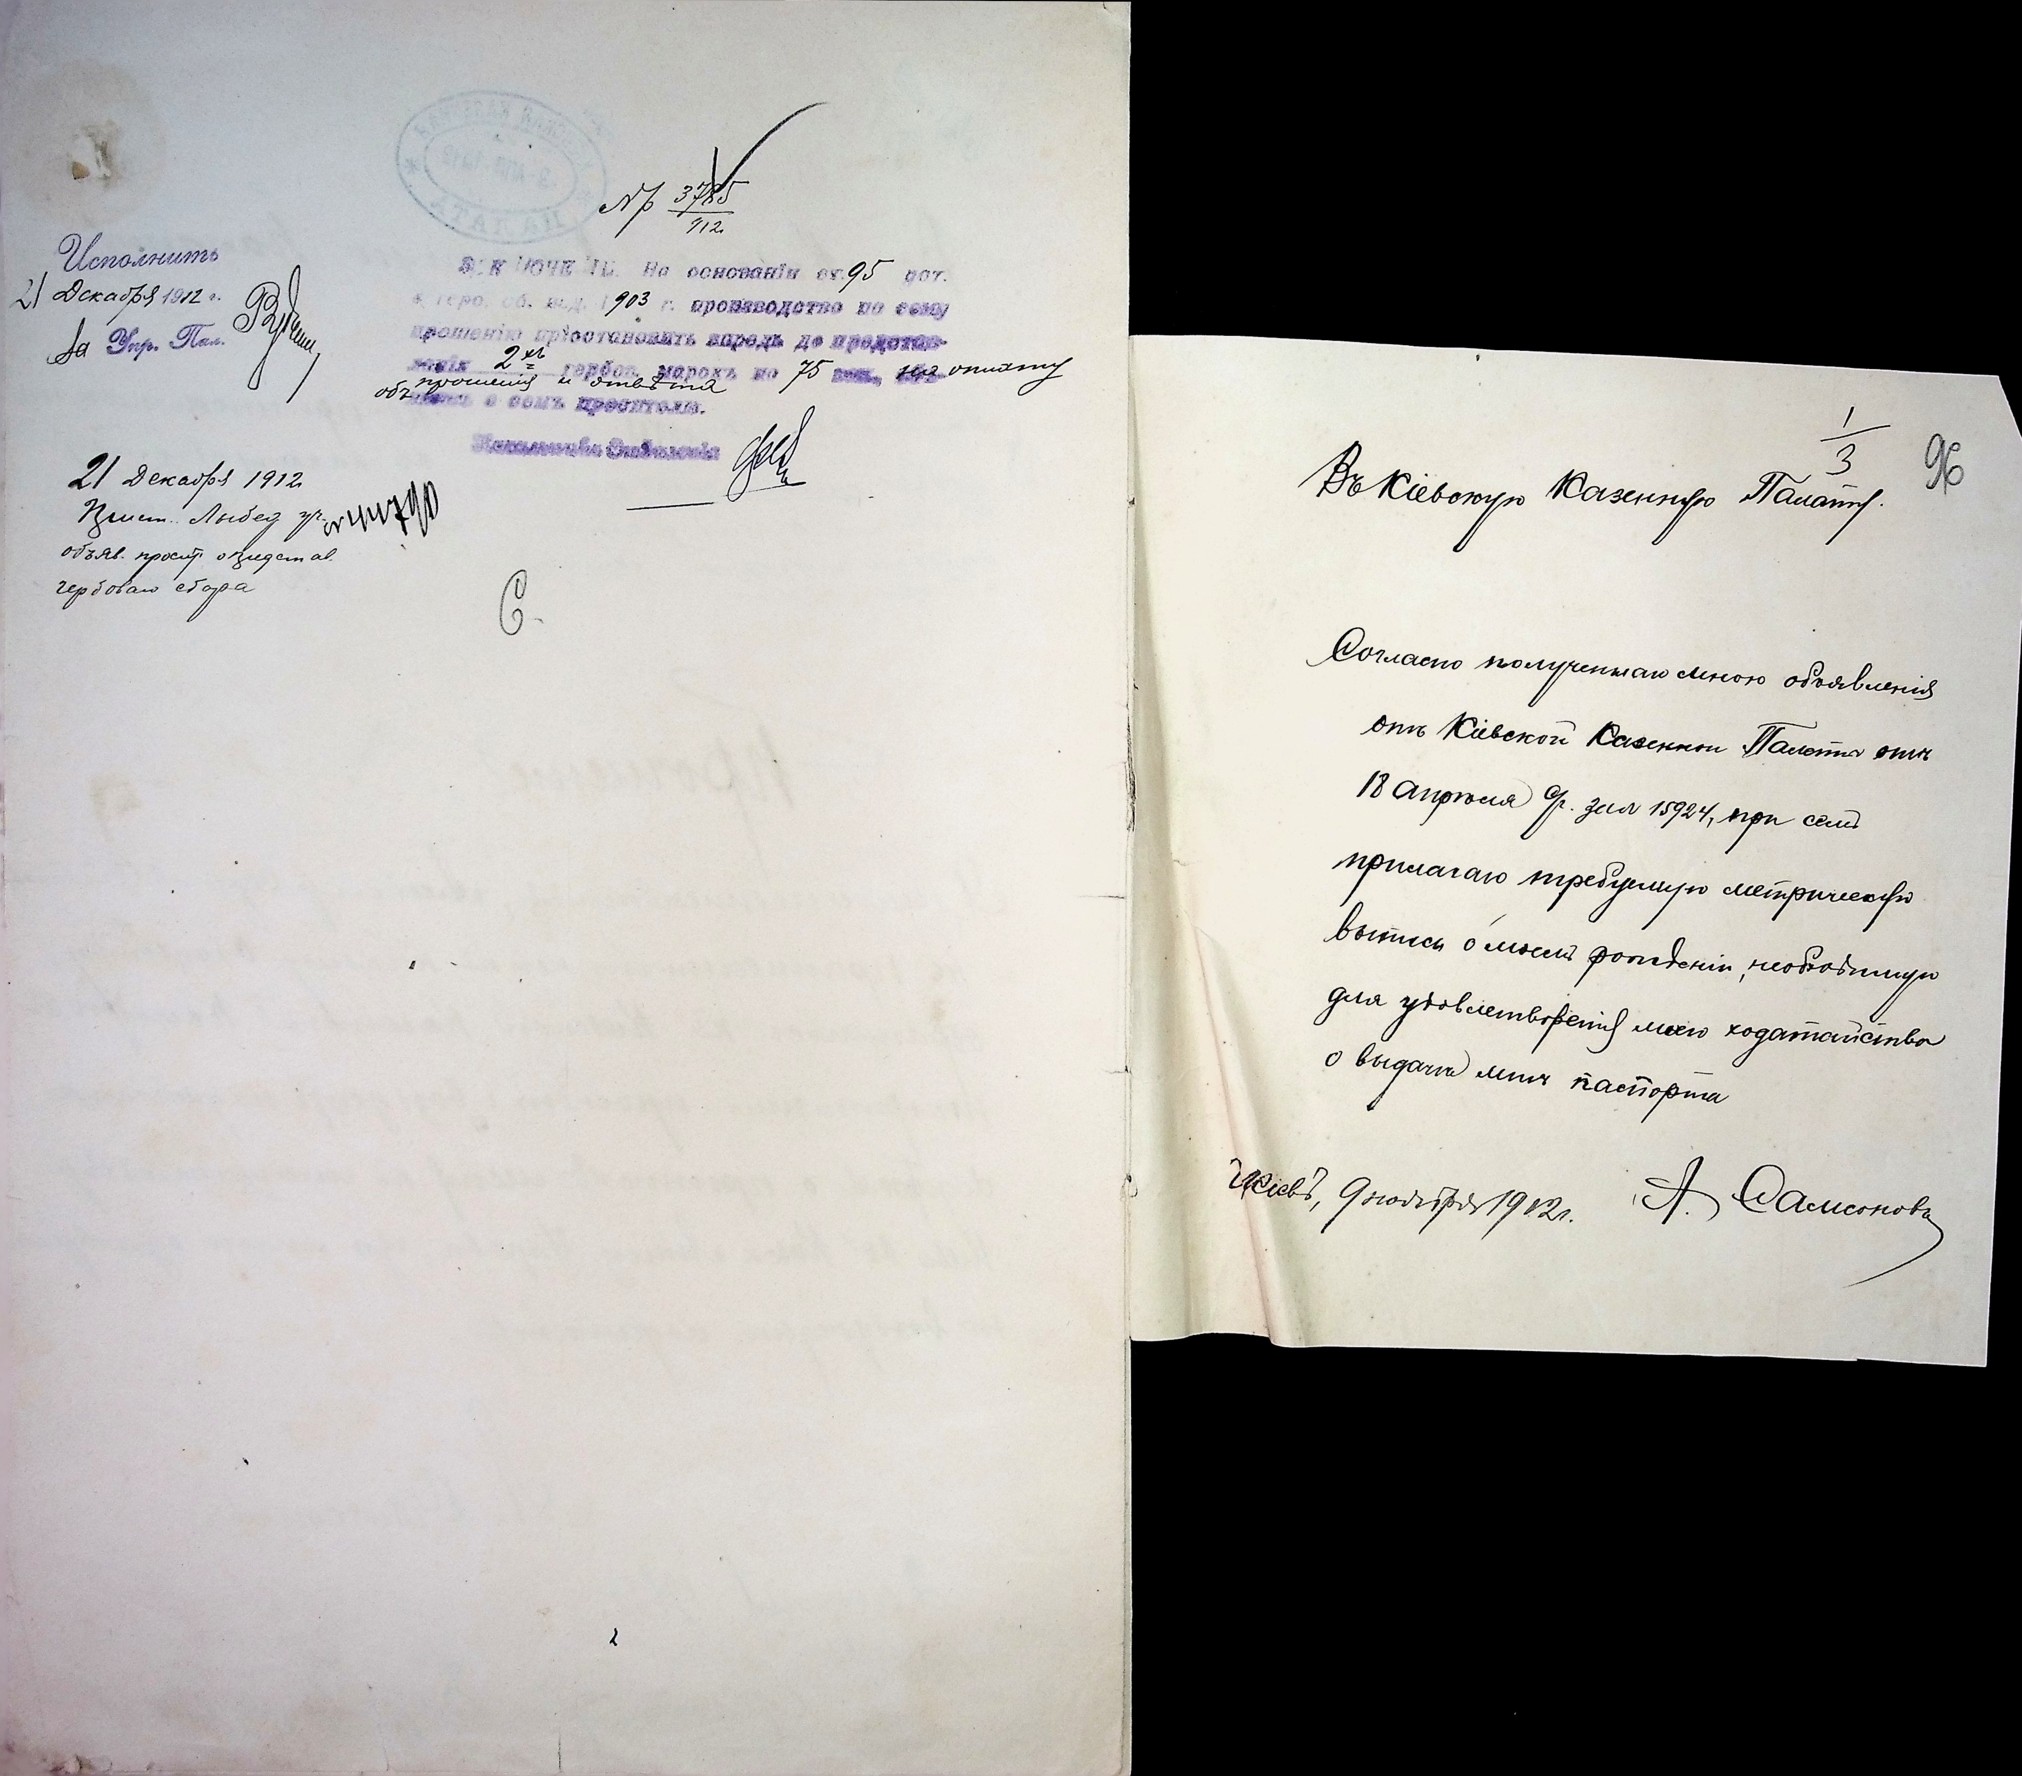 № 3785
912
Исполнить
21 Декабря 1912 г.
За Упр. Пал.
На основаніи ст. 95 уст.
о герб. сб. изд. 1903 г. производство по сему
прошенію пріостановить впредь до представ-
ленія 2хъ гербов. марокъ по 75 коп. на оплату
прошенія и отвѣта
объ о семъ просителю.
Начальникъ Отдѣленія
21 Декабря 1912
Прист. Лыбед уч. № 44790
объяв. просит. о представ.
гербоваго сбора
С.
1
3
96
Въ Кіевскую Казенную Палату.
Согласно полученнаго мною объявленія
отъ Кіевской Казенной Палаты отъ
18 апрѣля с/г. за № 15924, при семъ
прилагаю требуемую метрическую
выпись о моемъ рожденіи, необходимую
для удовлетворенія моего ходатайства
о выдачѣ мнѣ паспорта
г. Кіевъ, 9 ноября 1912 г. А. Самсоновъ